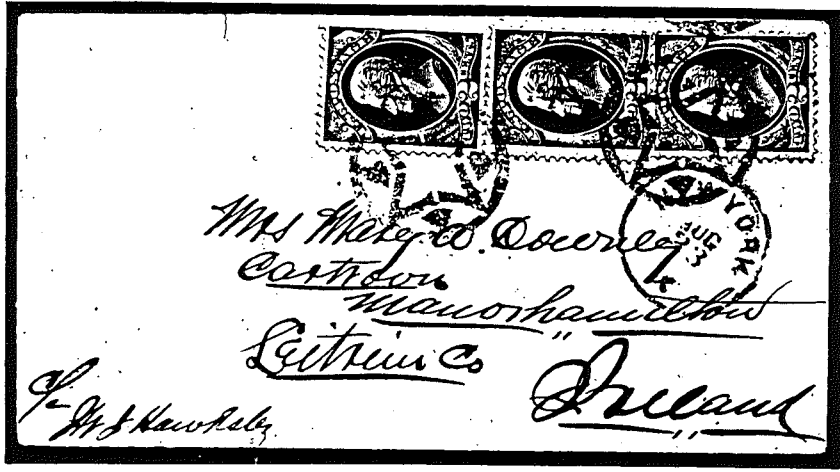 NEW YORK
AUG
3
Mrs Mary A. Downie
Cartroon
Manorhamilton
Leitrim Co
Ireland
C/o
Hawksley